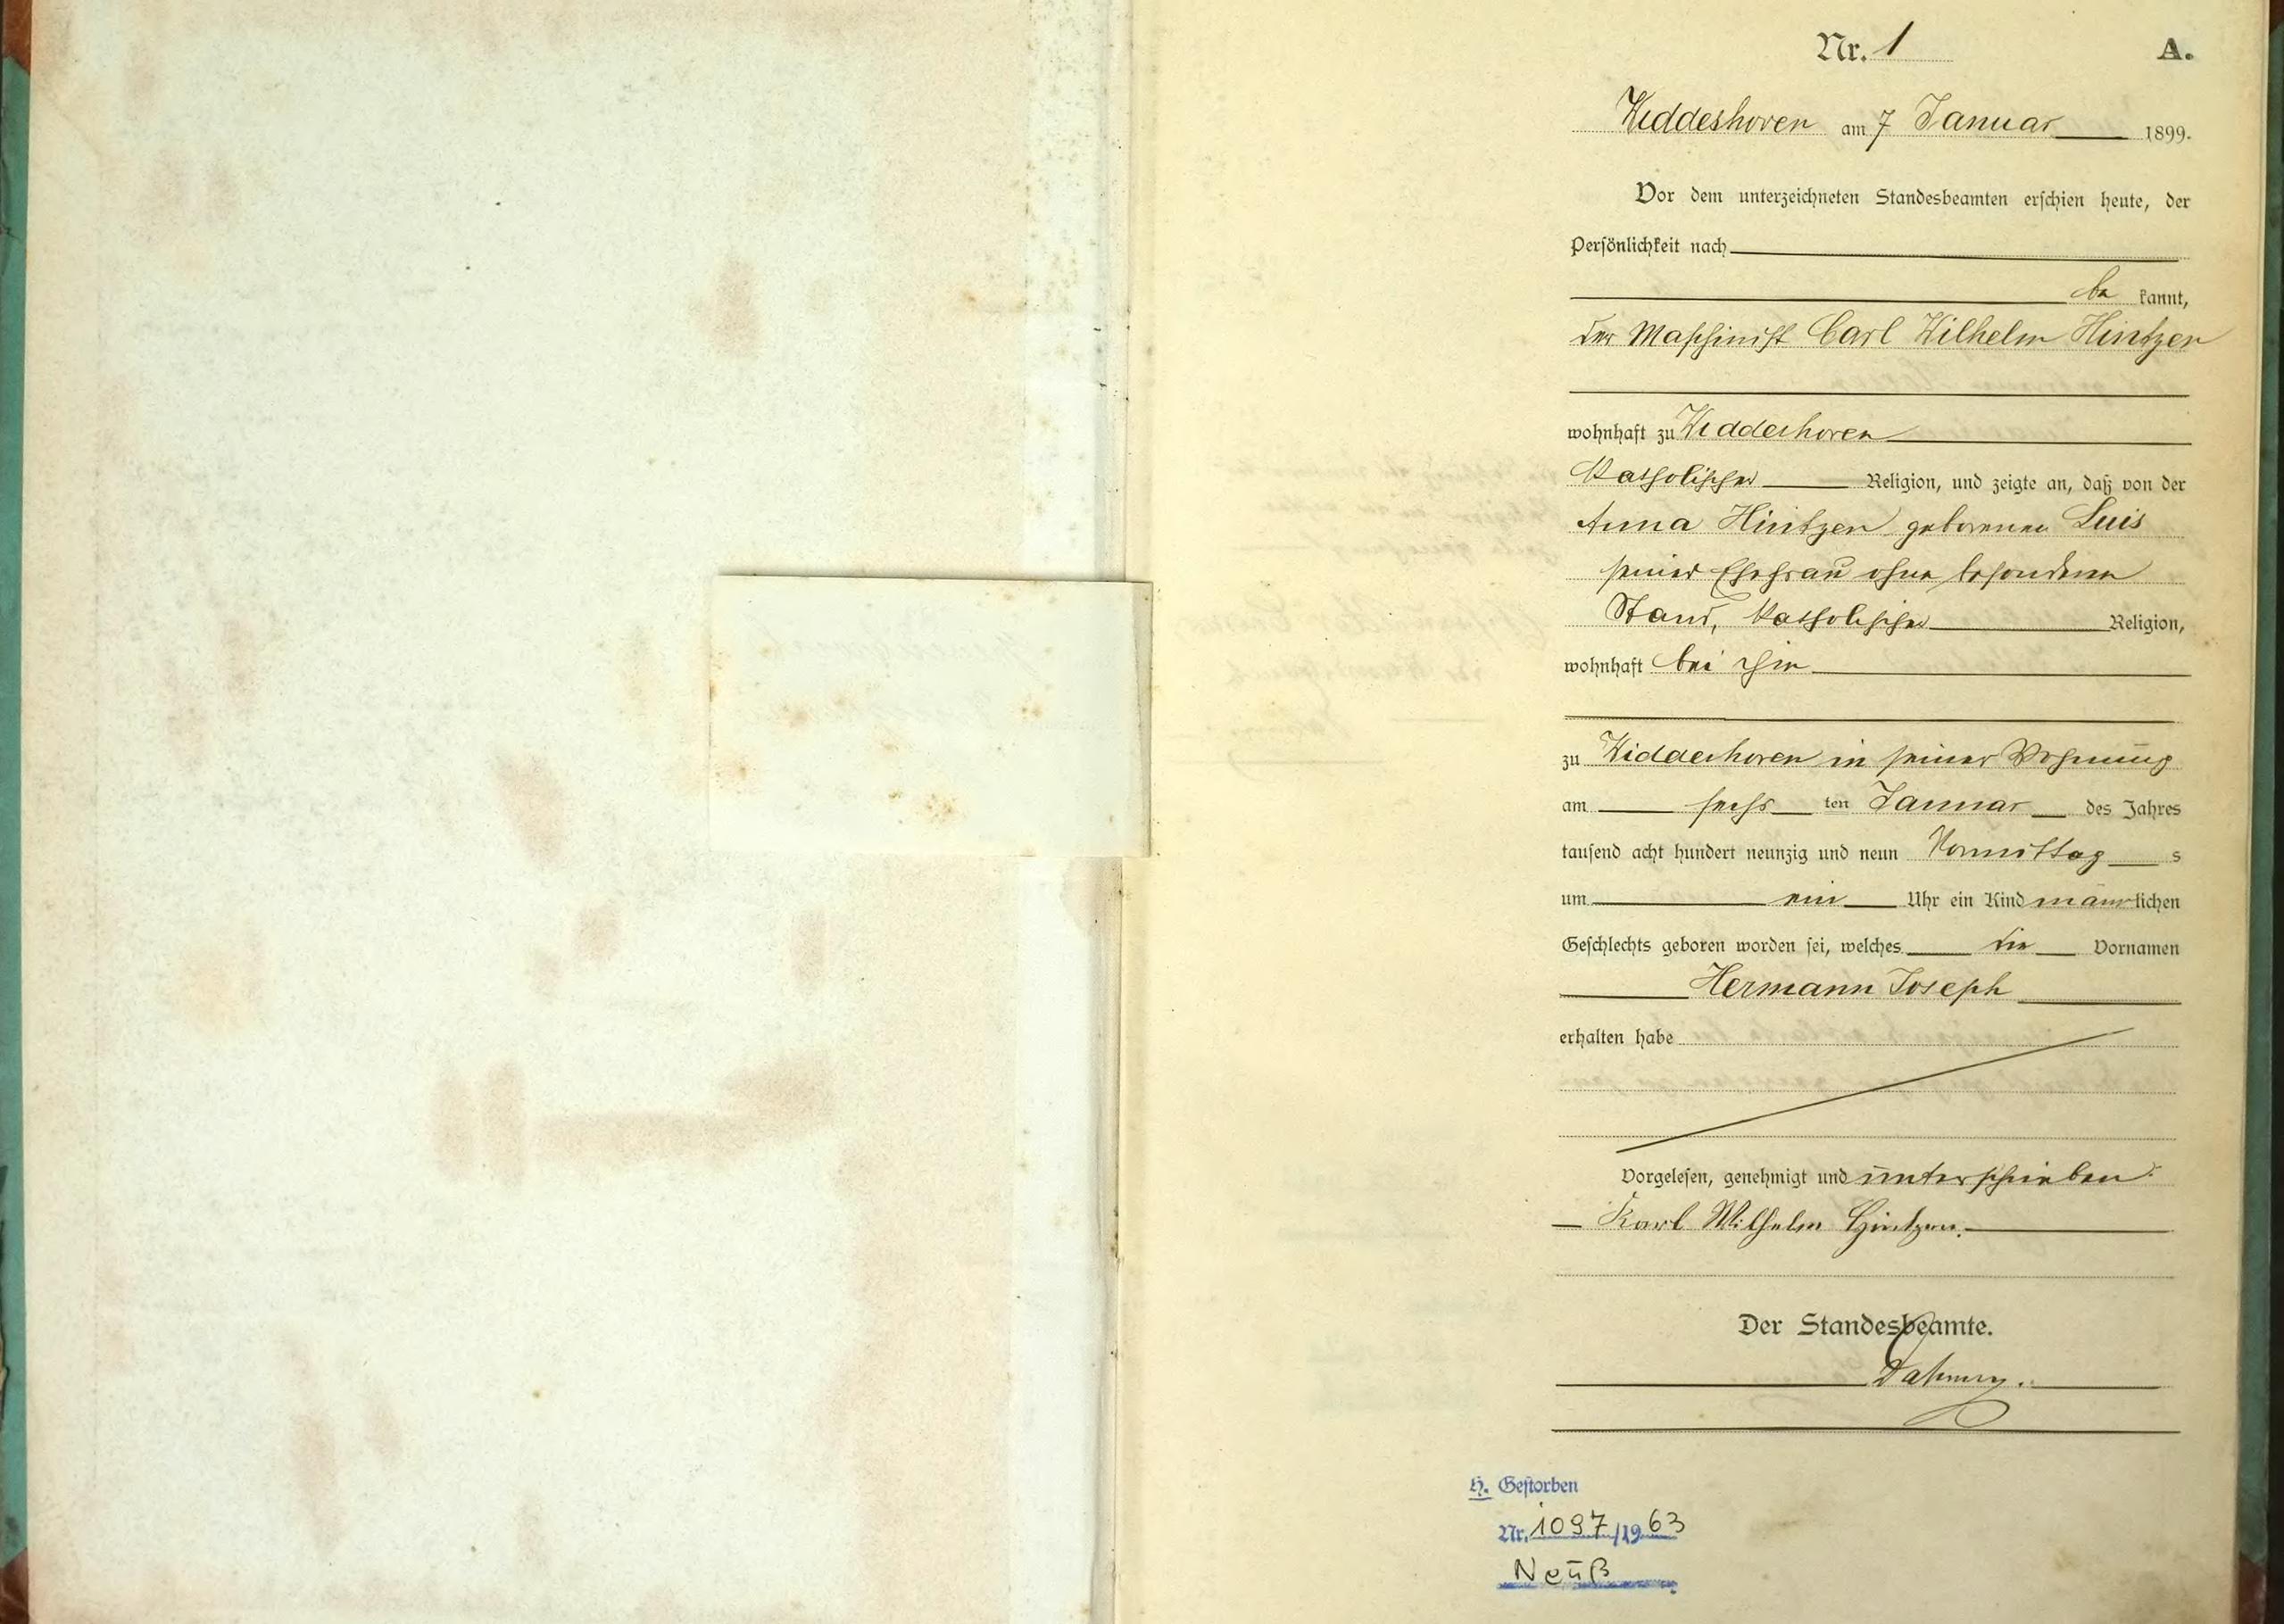 Nr. 1 A.
Widdeshoven am 7 Januar 1899.
Vor dem unterzeichneten Standesbeamten erschien heute, der
Persönlichkeit nach
be kannt,
der Maschinist Carl Wilhelm Hintzen
wohnhaft zu Widdeshoven
katholischer Religion, und zeigte an, daß von der
Anna Hintzen geborenen Luis
seiner Ehefrau ohne besonderen
Stand, katholischer Religion,
wohnhaft bei ihm
zu Widdeshoven in seiner Wohnung
am sechs ten Januar des Jahres
tausend acht hundert neunzig und neun Vormittag s
um ein Uhr ein Kind männlichen
Geschlechts geboren worden sei, welches die Vornamen
Hermann Joseph
erhalten habe
Vorgelesen, genehmigt und unterschrieben.
Karl Wilhelm Hintzen.
Der Standesbeamte.
H. Gestorben
Nr. 1097/1963
Neuß